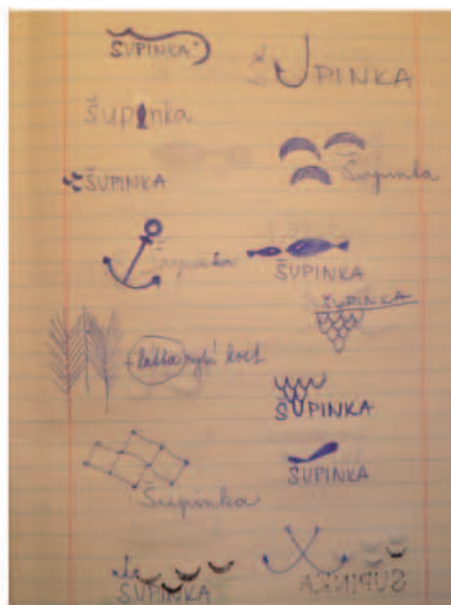 ŠUPINKA
UPINKA
Šupinka
ŠUPINKA
Šupinka
Šupinka
ŠUPINKA
ŠUPINKA
+ látka rybí kost
ŠUPINKA
Šupinka
ŠUPINKA
ŠUPINKA
ŠUPINKA